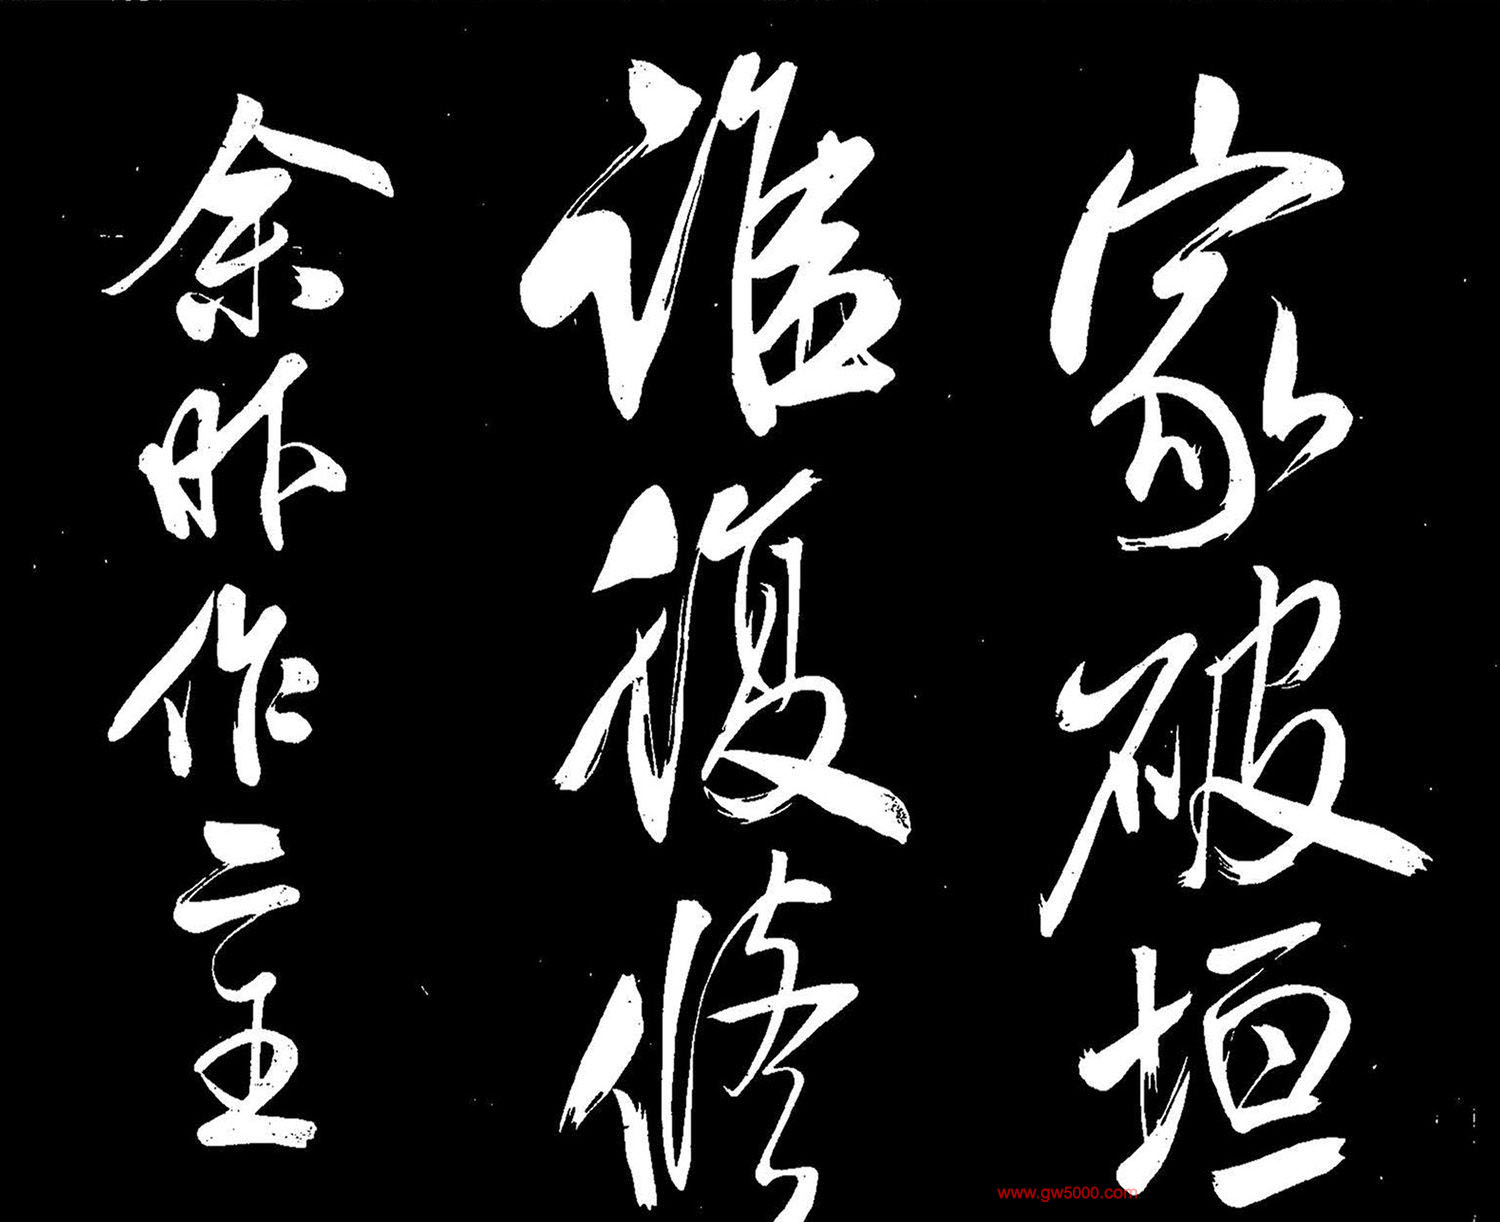 家破垣
誰復修
余昨作二主
www.gw5000.com